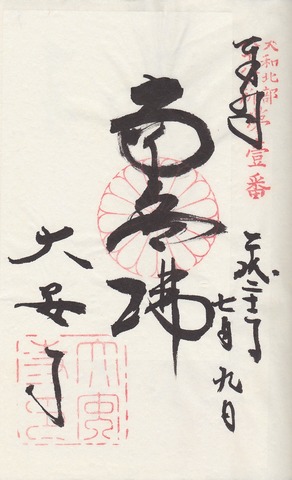 奉拝
大和北部
壹番
南無佛
平成二十一年
七月九日
大安寺